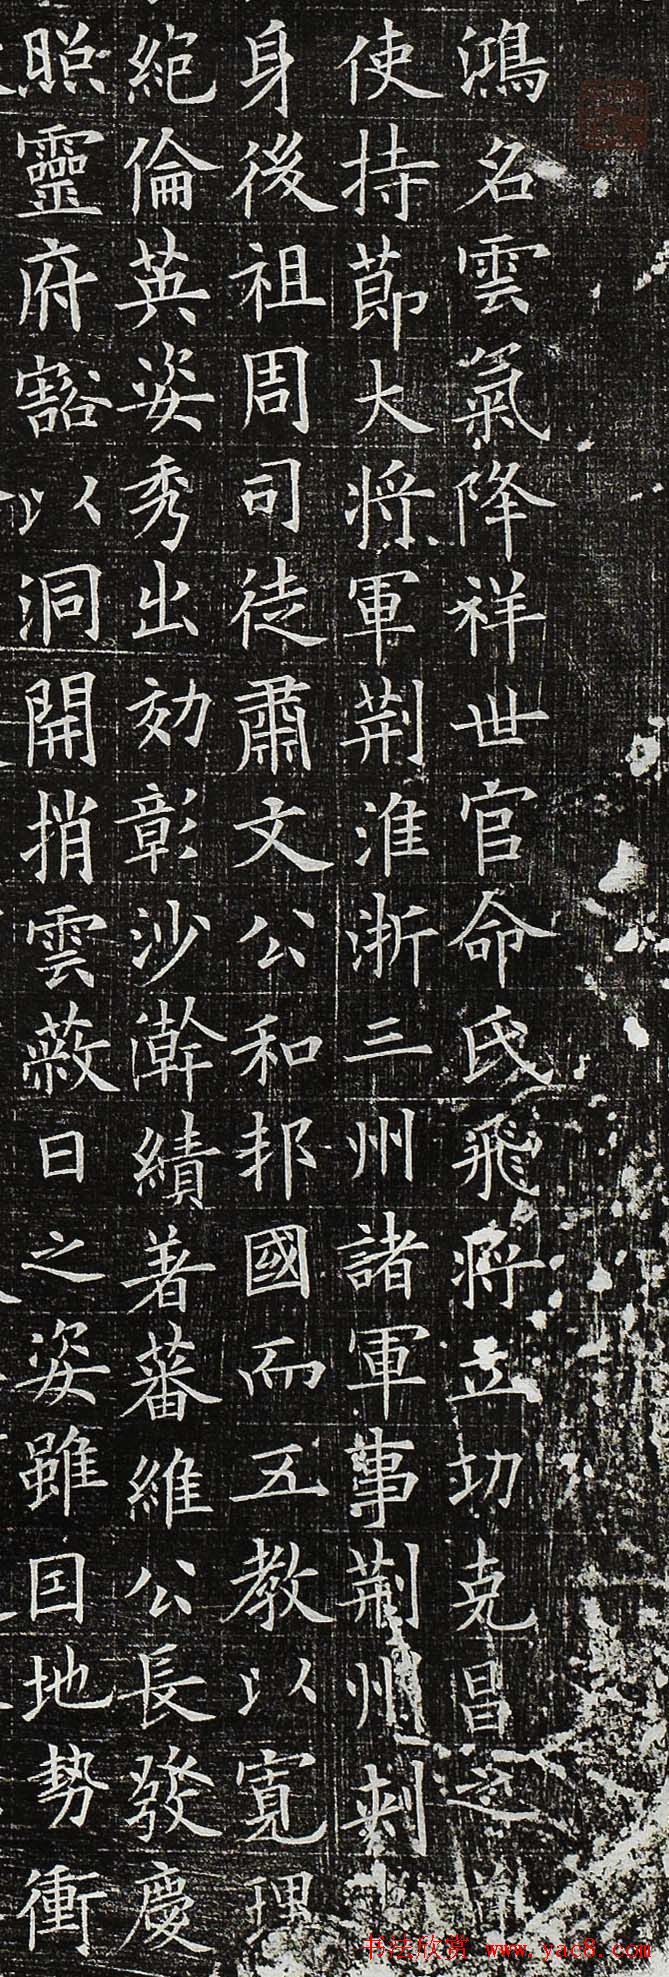 鴻名雲氣降祥世官命氏飛將立功克昌之
使持節大將軍荊淮浙三州諸軍事荊州刺
身後祖周司徒肅文公和邦國而五教以寬理
絕倫英姿秀出効彰沙澣績著蕃維公長發慶
照靈府豁以洞開捎雲蔽日之姿雖因地勢衝
书法欣赏 www.yac8.com